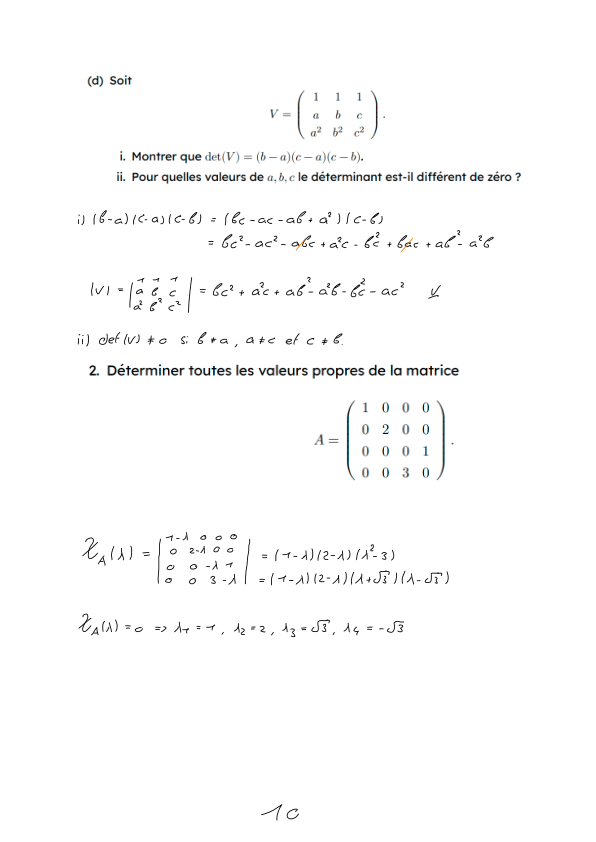 (d) Soit
V = ( 1 1 1
a b c
a² b² c² ).
i. Montrer que det(V) = (b − a)(c − a)(c − b).
ii. Pour quelles valeurs de a, b, c le déterminant est-il différent de zéro ?
i) (b-a)(c-a)(c-b) = (bc - ac - ab + a²)(c-b)
= bc² - ac² - abc + a²c - b²c + bac + ab² - a²b
|V| = | 1 1 1
a b c
a² b² c² | = bc² + a²c + ab² - a²b - b²c - ac²
ii) det(V) ≠ 0 si b ≠ a, a ≠ c et c ≠ b.
2. Déterminer toutes les valeurs propres de la matrice
A = ( 1 0 0 0
0 2 0 0
0 0 0 1
0 0 3 0 ).
χ_A(λ) = | 1-λ 0 0 0
0 2-λ 0 0
0 0 -λ 1
0 0 3 -λ | = (1-λ)(2-λ)(λ²-3)
= (1-λ)(2-λ)(λ+√3)(λ-√3)
χ_A(λ) = 0 => λ1 = 1, λ2 = 2, λ3 = √3, λ4 = -√3
10